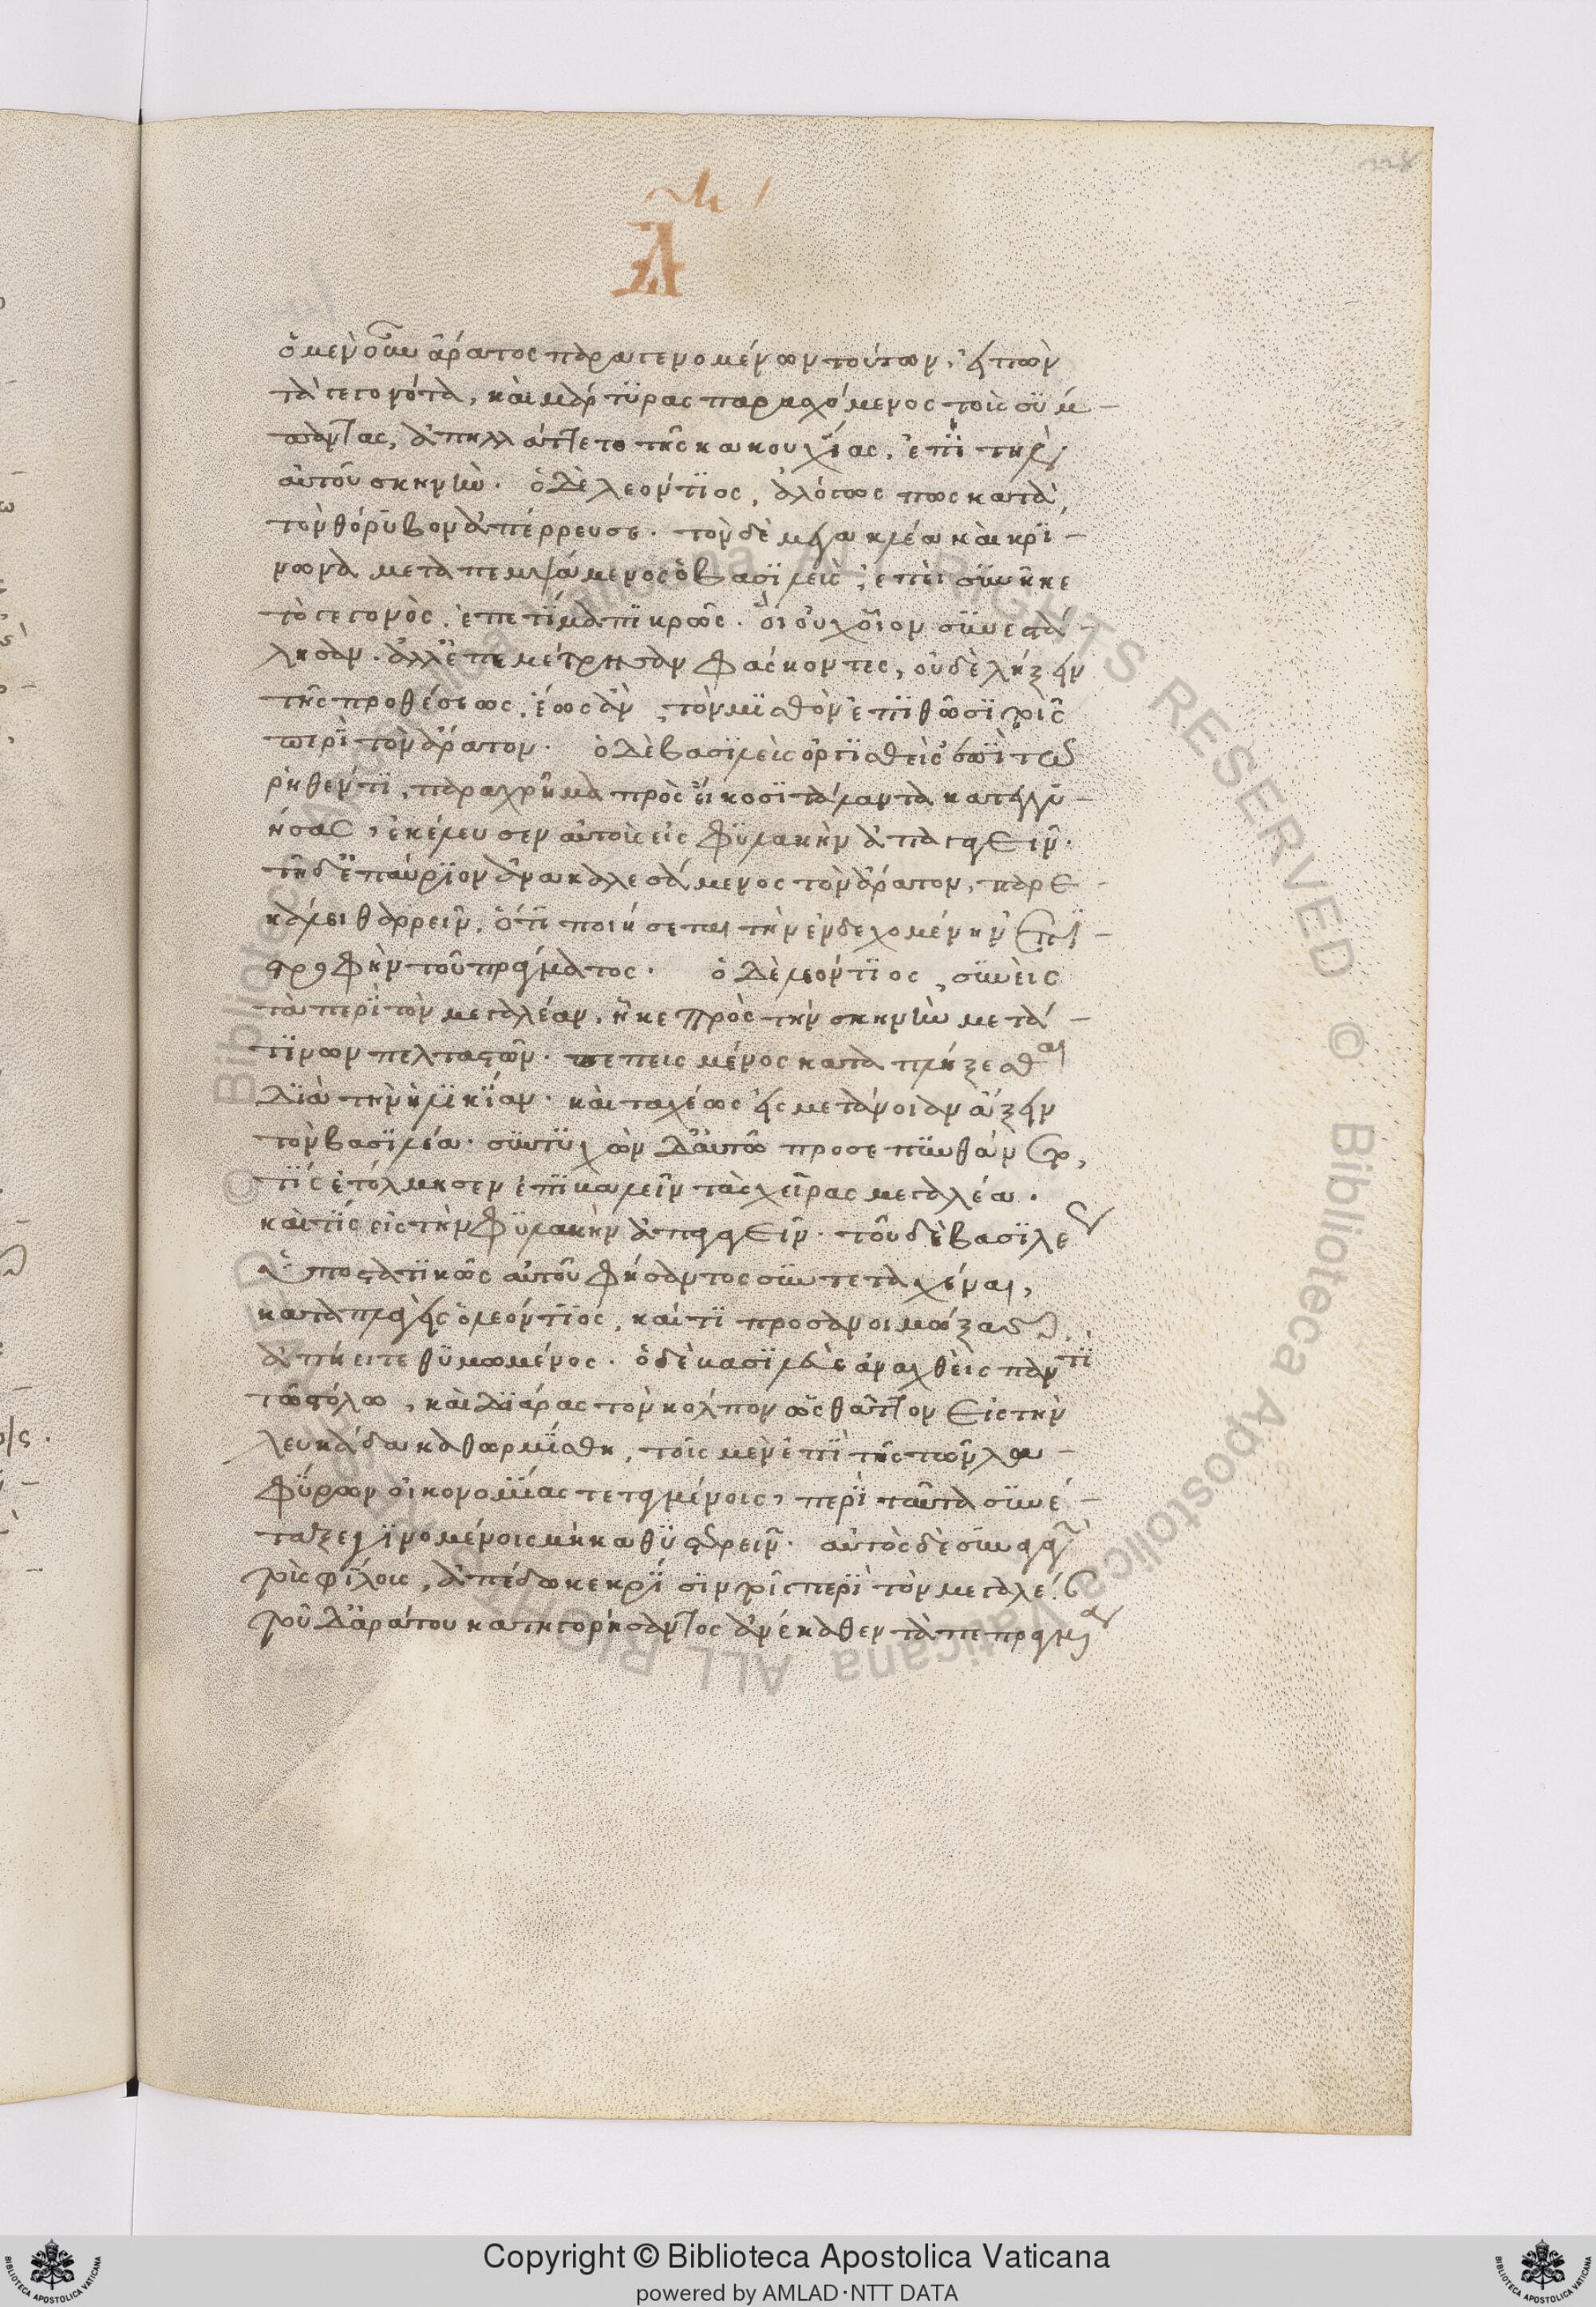 ὁ μὲν οὖν ἄρατος παραγενομένων τούτων, εἰπὼν
τὰ γεγονότα, καὶ μάρτυρας παρασχόμενος τοὺς συμ-
πάντας, ἀπηλλάττετο τῆς κακουχίας, ἐπὶ τὴν
αὐτοῦ σκηνὴν. ὁ δὲ λεόντιος, ἀλόγως πως κατὰ
τὸν θόρυβον ἀπέρρευσε. τὸν δὲ μεγαλέα καὶ κρί-
νωνα μεταπεμψάμενος ὁ βασιλεὺς, ἐπεὶ συνῆκε
τὸ γεγονὸς, ἐπετίμα πικρῶς. οἱ δ οὐχ οἷον συνεστά-
λησαν. ἀλλ ἐπεμέτρησαν φάσκοντες, οὐδὲ λήξειν
τῆς προθέσεως, ἕως ἂν τὸν μισθὸν ἐπιθῶσι τοῖς
περὶ τὸν ἄρατον. ὁ δὲ βασιλεὺς ὀργισθεὶς ἐπὶ τῶ
ῥηθέντι, παραχρῆμα πρὸς εἴκοσι τάλαντα κατεγγυ-
ήσας, ἐκέλευσεν αὐτοὺς εἰς φυλακὴν ἀπαγαγεῖν.
τῆ δ ἐπαύριον ἀνακαλεσάμενος τὸν ἄρατον, παρε-
κάλει θαρρεῖν, ὅτι ποιήσεται τὴν ἐνδεχομένην ἐπι-
στροφὴν τοῦ πράγματος. ὁ δὲ λεόντιος, συνεὶς
τὰ περὶ τὸν μεγαλέαν, ἧκε πρὸς τὴν σκηνὴν μετά
τινων πελταστῶν. πεπεισμένος καταπλήξεσθαι
διὰ τὴν ἡλικίαν. καὶ ταχέως εἰς μετάνοιαν ἄξειν
τὸν βασιλέα. συντυχὼν δ αὐτῶ προσεπυνθάνετο,
τίς ἐτόλμησεν ἐπικαλεῖν τὰς χεῖρας μεγαλέα.
καὶ τίς εἰς τὴν φυλακὴν ἀπαγαγεῖν. τοῦ δὲ βασιλέως
ὑποστατικῶς αὐτοῦ φήσαντος συντεταχέναι,
καταπλαγεὶς ὁ λεόντιος, καί τι προσανοιμώξας
ἀπήει τεθυμωμένος. ὁ δὲ κασιλεὺς ἀναχθεὶς παντὶ
τῶ στόλω, καὶ διάρας τὸν κόλπον ὡς θᾶττον εἰς τὴν
λευκάδα καθωρμίσθη, τοῖς μὲν ἐπὶ τῆς τῶν λα-
φύρων οἰκονομίας τεταγμένοις, περὶ ταῦτα συνέ-
ταξε γινομένοις μὴ καθυστερεῖν. αὐτὸς δὲ συναγαγὼν
τοὺς φίλους, ἀπέδωκε κρίσιν τοῖς περὶ τὸν μεγαλέαν
τοῦ δ ἀράτου κατηγορήσαντος ἀνέκαθεν τὰ πεπραγμένα
Copyright © Biblioteca Apostolica Vaticana
powered by AMLAD·NTT DATA